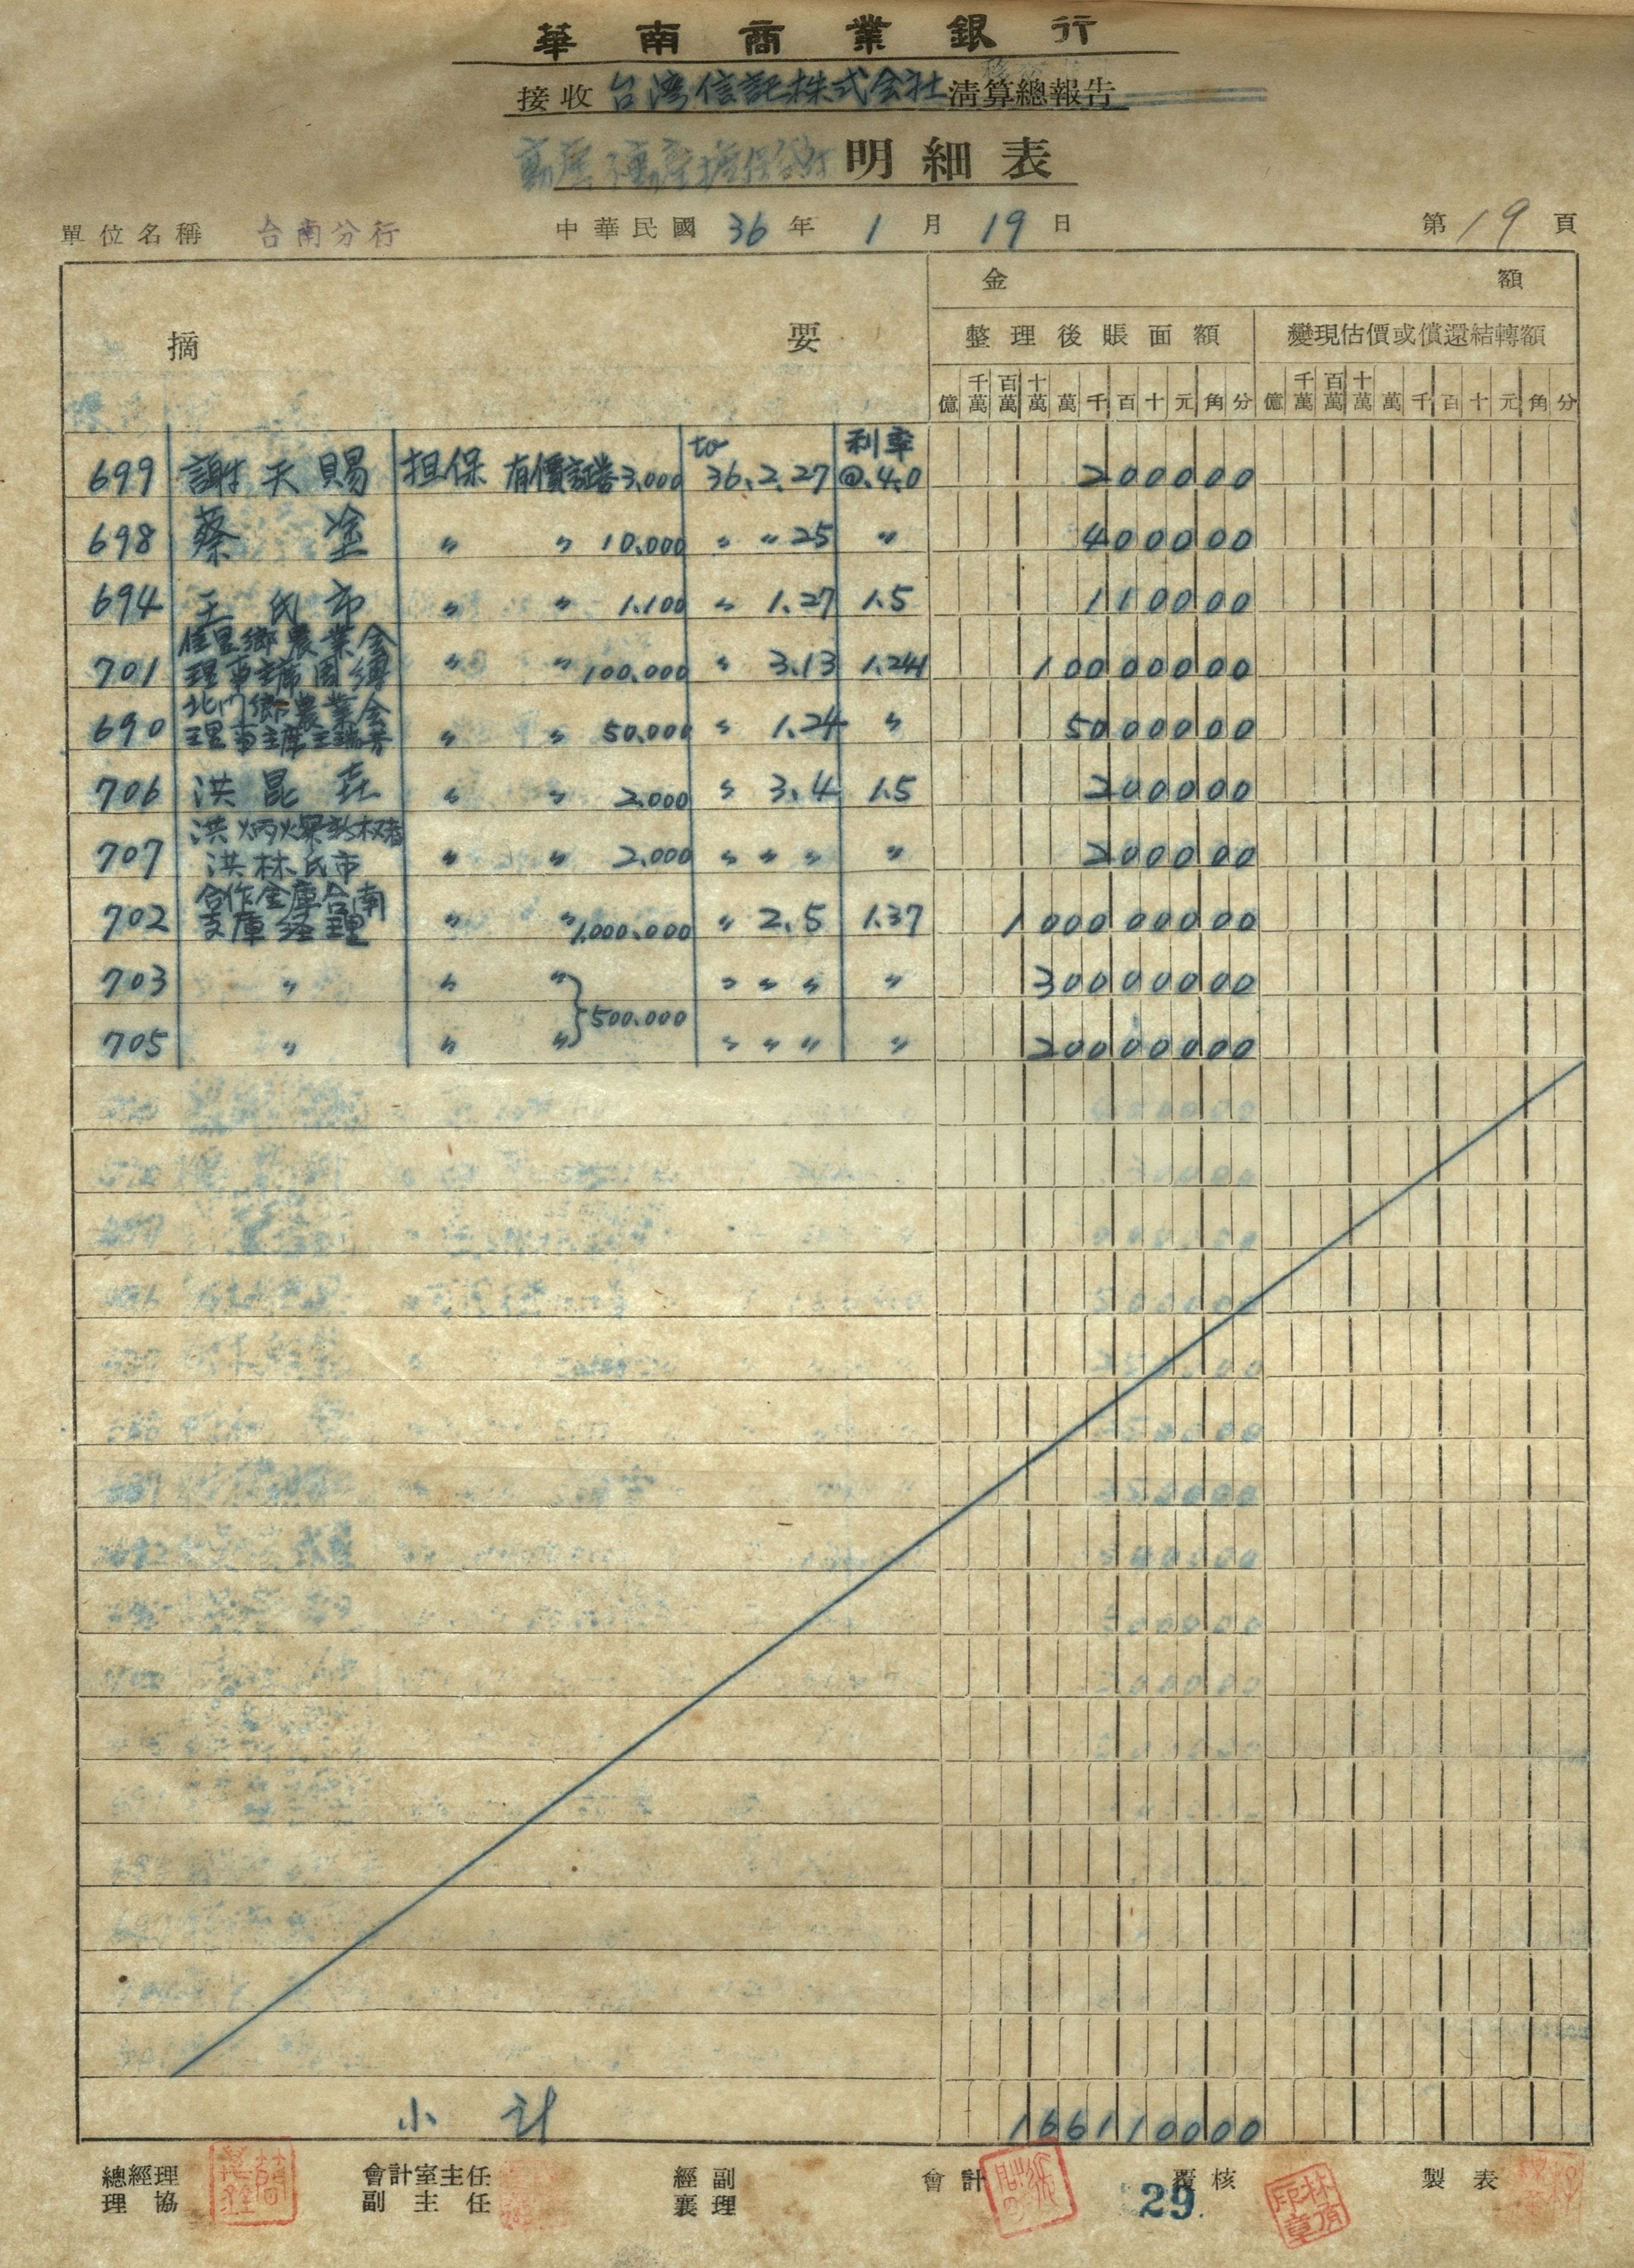 華南商業銀行
接收 台湾信託株式会社 清算總報告
動產不動產擔保放款 明細表
單位名稱 台南分行 中華民國 36 年 1 月 19 日 第 19 頁
摘要 金額
整理後賬面額 變現估價或償還結轉額
億 千萬 百萬 十萬 萬 千 百 十 元 角 分 億 千萬 百萬 十萬 萬 千 百 十 元 角 分
to 利率
699 謝天賜 担保 有價証券 3,000 36.2.27 @.4.0 200000
698 蔡塗 〃 〃 10.000 〃 〃 25 〃 400000
694 王氏市 〃 〃 1.100 〃 1.27 1.5 110000
701 佳里鄉農業会
理事主席周縛 〃 〃 100.000 〃 3.13 1.241 10000000
690 北門鄉農業会
理事主席王 〃 〃 50.000 〃 1.24 〃 5000000
706 洪昆 〃 〃 2.000 〃 3.4 1.5 200000
洪炳
707 洪林氏市 〃 〃 2.000 〃 〃 〃 〃 200000
702 合作金庫台南
支庫経理 〃 〃 1,000.000 〃 2.5 1.37 100000000
703 〃 〃 〃 〃 〃 〃 〃 30000000
500.000
705 〃 〃 〃 〃 〃 〃 〃 20000000
小計 166110000
總經理 會計室主任 經副 會計 覆核 製表
理協 副主任 襄理
29.
林
印章